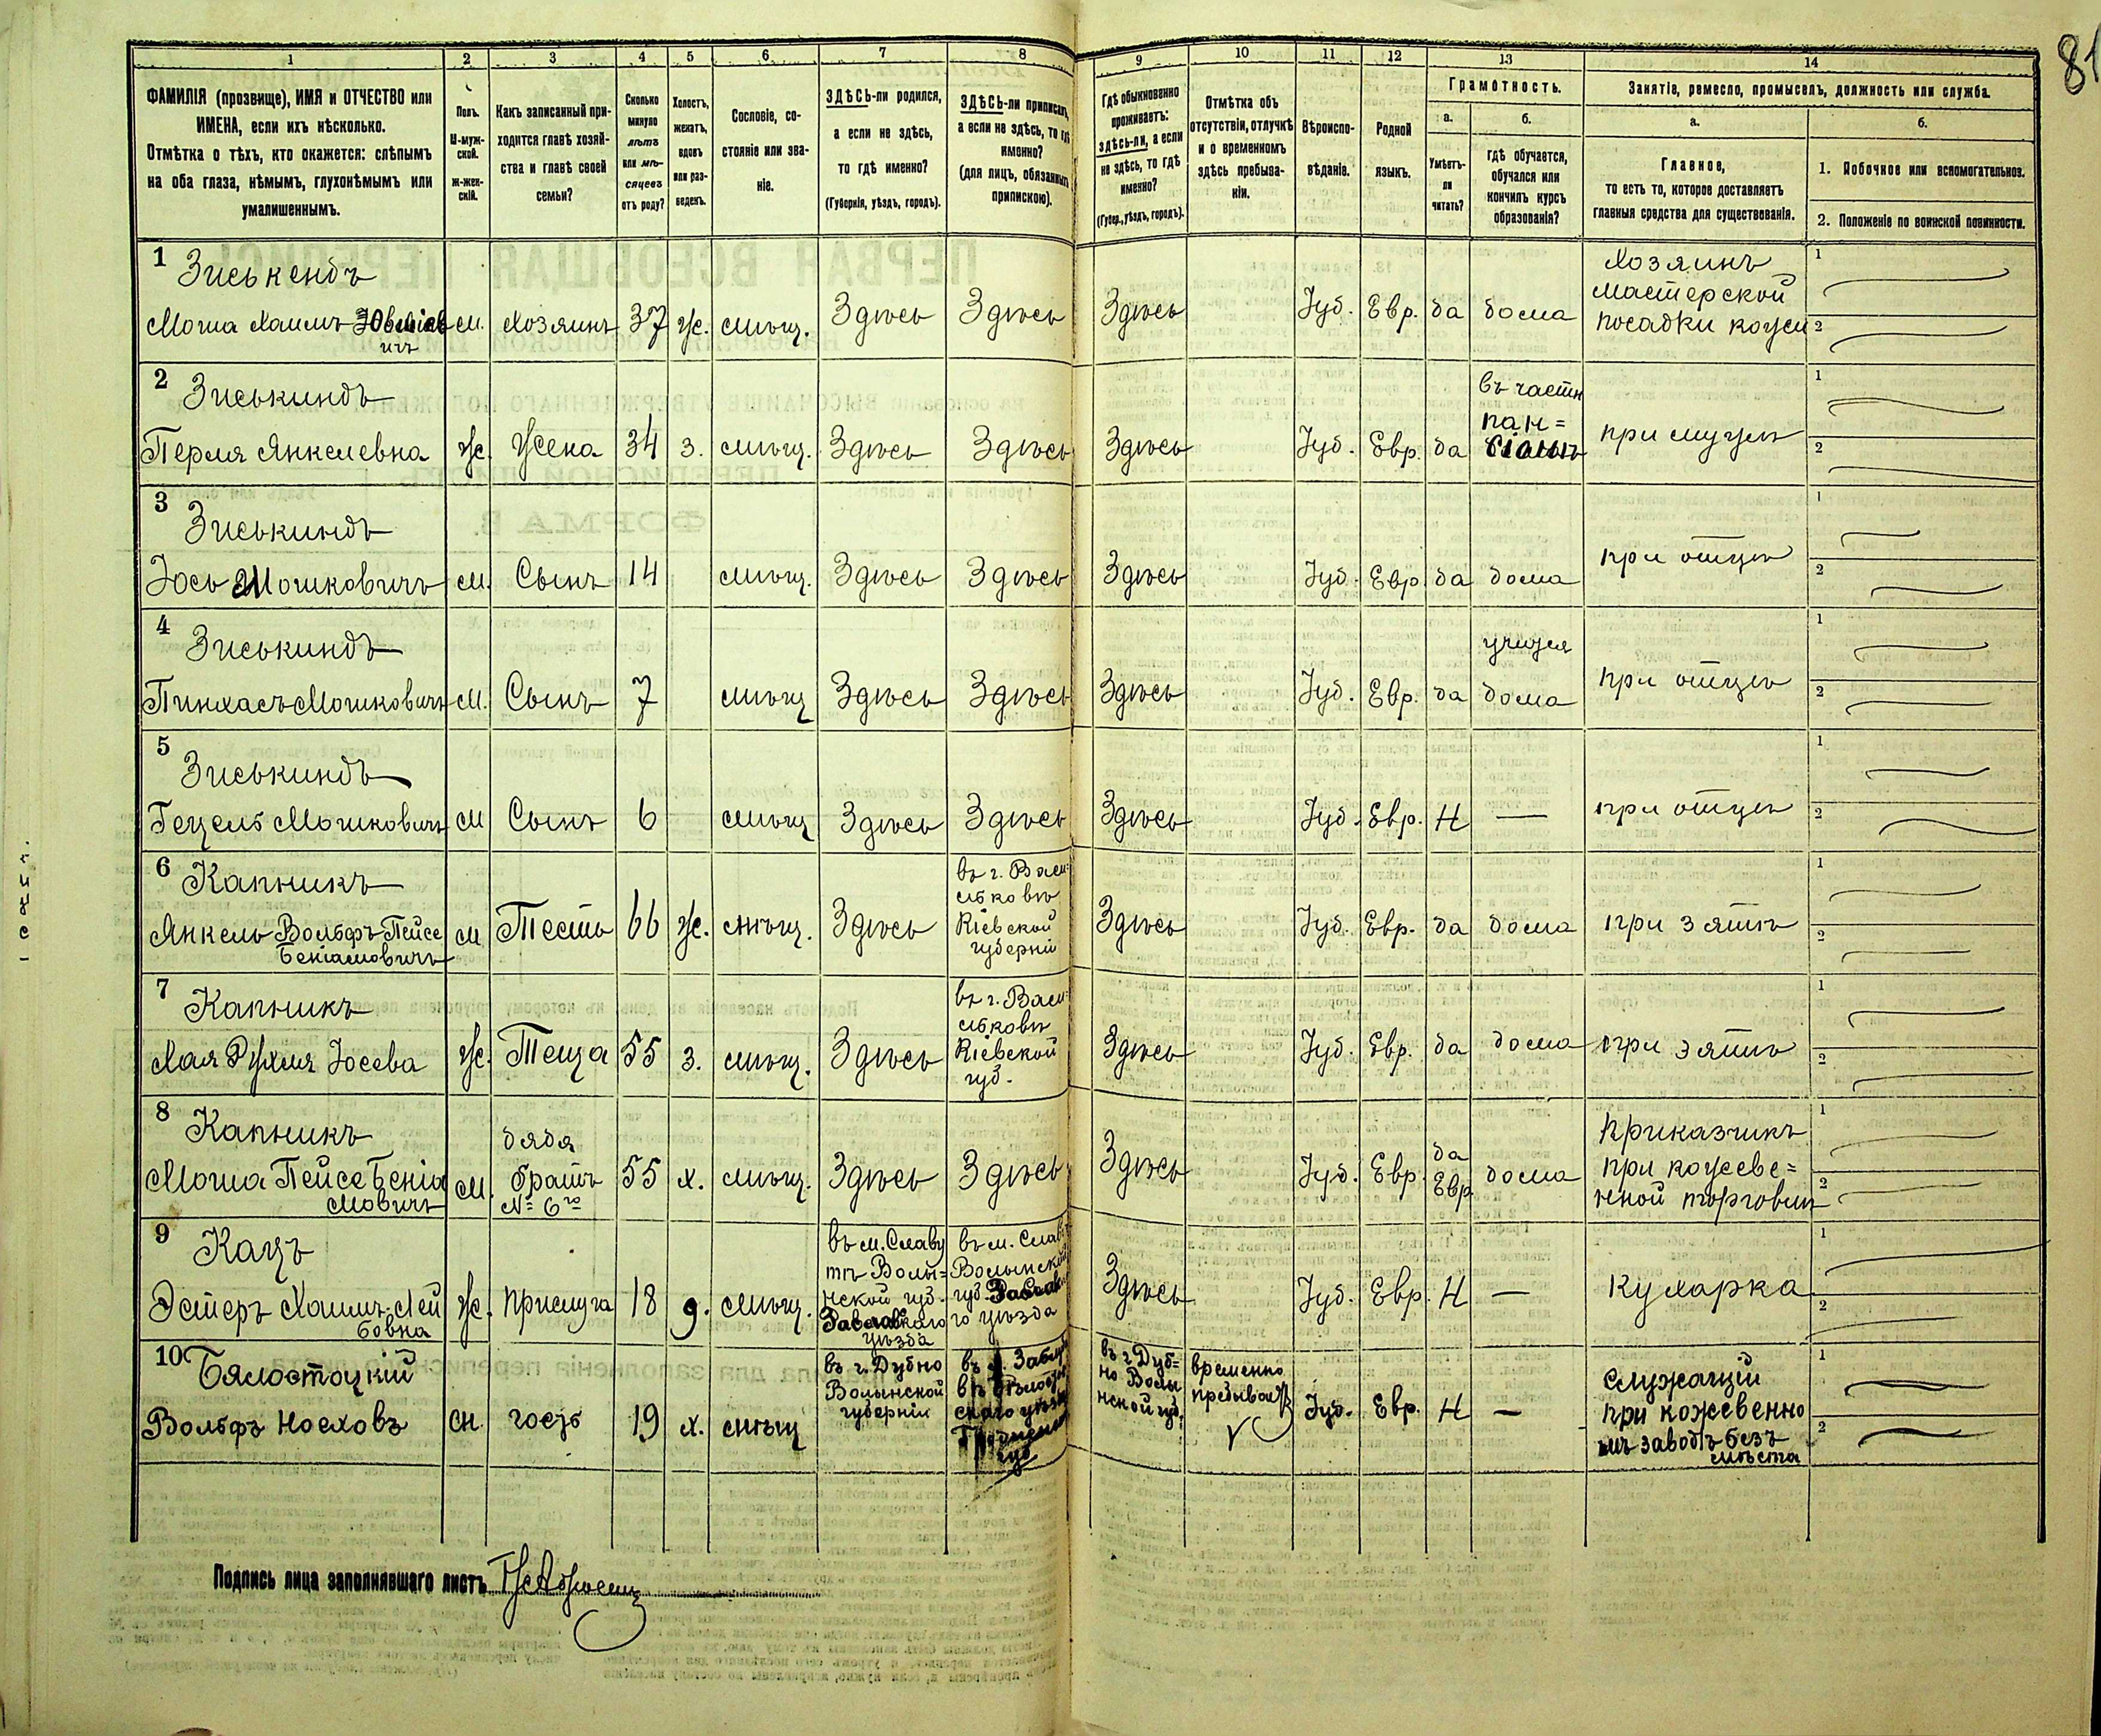 81
1 2 3 4 5 6 7 8 9 10 11 12 13 14
ФАМИЛІЯ (прозвище), ИМЯ и ОТЧЕСТВО или
ИМЕНА, если ихъ нѣсколько.
Отмѣтка о тѣхъ, кто окажется: слѣпымъ
на оба глаза, нѣмымъ, глухонѣмымъ или
умалишеннымъ.
Полъ.
М-муж-
ской.
Ж-жен-
скій.
Какъ записанный при-
ходится главѣ хозяй-
ства и главѣ своей
семьи?
Сколько
минуло
лѣтъ
или мѣ-
сяцевъ
отъ роду?
Холостъ,
женатъ,
вдовъ
или раз-
веденъ.
Сословіе, со-
стояніе или зва-
ніе.
ЗДѢСЬ-ли родился,
а если не здѣсь,
то гдѣ именно?
(Губернія, уѣздъ, городъ).
ЗДѢСЬ-ли приписанъ,
а если не здѣсь, то гдѣ
именно?
(для лицъ, обязанныхъ
припискою).
Гдѣ обыкновенно
проживаетъ:
здѣсь-ли, а если
не здѣсь, то гдѣ
именно?
(Губер., уѣздъ, городъ).
Отмѣтка объ
отсутствіи, отлучкѣ
и о временномъ
здѣсь пребыва-
ніи.
Вѣроиспо-
вѣданіе.
Родной
языкъ.
Грамотность.
а.
Умѣетъ-
ли
читать?
б.
гдѣ обучается,
обучался или
кончилъ курсъ
образованія?
Занятіе, ремесло, промыселъ, должность или служба.
а.
Главное,
то есть то, которое доставляетъ
главныя средства для существованія.
б.
1. Побочное или вспомогательное.
2. Положеніе по воинской повинности.
1 Зиськендъ
Хозяинъ
мастерской
посадки кожи
Моша Хаимъ м. Хозяинъ 37 ж. мѣщ. Здѣсь Здѣсь Здѣсь Іуд. Евр. да дома
2 Зиськиндъ
въ частн
пан=
Перля Янкелевна ж. Жена 34 з. мѣщ. Здѣсь Здѣсь Здѣсь Іуд. Евр. да сіонѣ при мужѣ
3 Зиськиндъ
Іось Мошковичъ м. Сынъ 14 мѣщ. Здѣсь Здѣсь Здѣсь Іуд. Евр да дома при отцѣ
4 Зиськиндъ
учится
Пинхасъ Мошковичъ м. Сынъ 7 мѣщ Здѣсь Здѣсь Здѣсь Іуд. Евр. да дома при отцѣ
5 Зиськиндъ
Гецель Мошковичъ м Сынъ 6 мѣщ Здѣсь Здѣсь Здѣсь Іуд. Евр. Н — при отцѣ
6 Капникъ
въ г. Васи=
льковѣ
Кіевской
губерніи
Янкель Вольфъ Пейсе м Тесть 66 ж. мѣщ. Здѣсь Здѣсь Іуд. Евр. да дома при зятѣ
Беніамовичъ
7 Капникъ
въ г. Васи=
льковѣ
Кіевской
губ.
Хая Рухля Іосева ж. Теща 55 з. мѣщ. Здѣсь Здѣсь Іуд. Евр. да дома при зятѣ
8 Капникъ
дядя
братъ
№ 6го
Моша Пейсе Беніа
мовичъ
м. 55 х. мѣщ. Здѣсь Здѣсь Здѣсь Іуд. Евр. да
Евр
дома
приказчикъ
при кожеве=
нной торговлѣ
9 Кацъ
Эстеръ Хаимъ-Лей
бовна
ж. прислуга 18 д. мѣщ.
въ м. Славу
тѣ Волы=
нской губ.
Заславскаго
уѣзда
въ м. Слав
Волынской
губ. Заслав
го уѣзда
Здѣсь Іуд. Евр. Н — Кухарка
10 Бялостоцкій
Вольфъ Ноеховъ м. гость 19 х. мѣщ
въ г. Дубно
Волынской
губерніи
въ г. Дуб=
но Волы
нской губ.
временно
Іуд. Евр. Н —
Служащій
при кожевенно
мъ заводѣ безъ
мѣста
Подпись лица заполнявшаго листъ